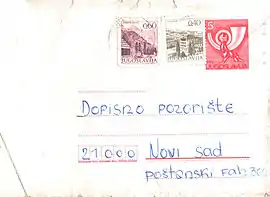 0.60
0.40
5
JUGOSLAVIJA
JUGOSLAVIJA
DOPISNO POZORIŠTE
21000 NOVI SAD
poštanski fah